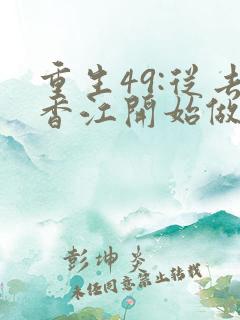 重生49:从去
香江開始做
彭坤炎
未经同意禁止转载